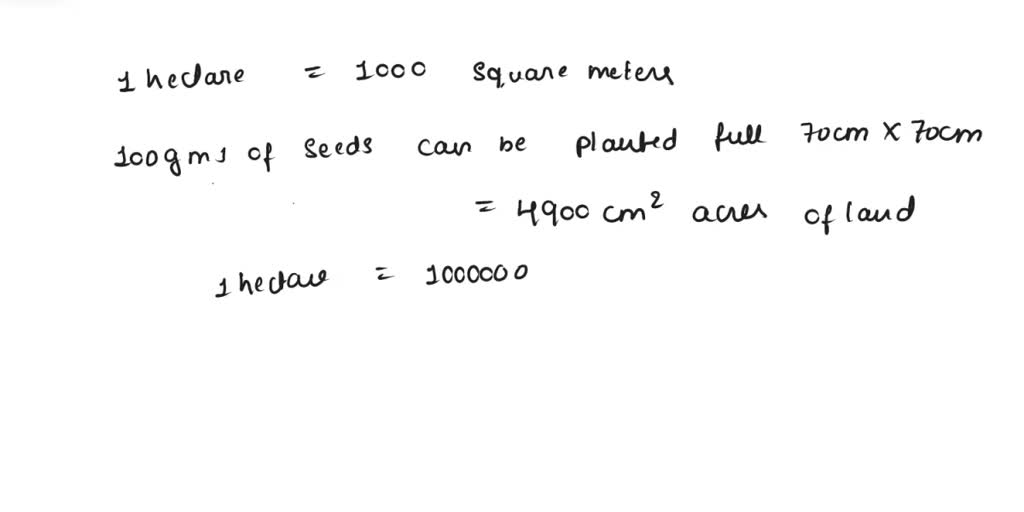 1 hectare = 1000 square meters
100gms of seeds can be planted full 70cm x 70cm
= 4900 cm² acres of land
1 hectare = 1000000